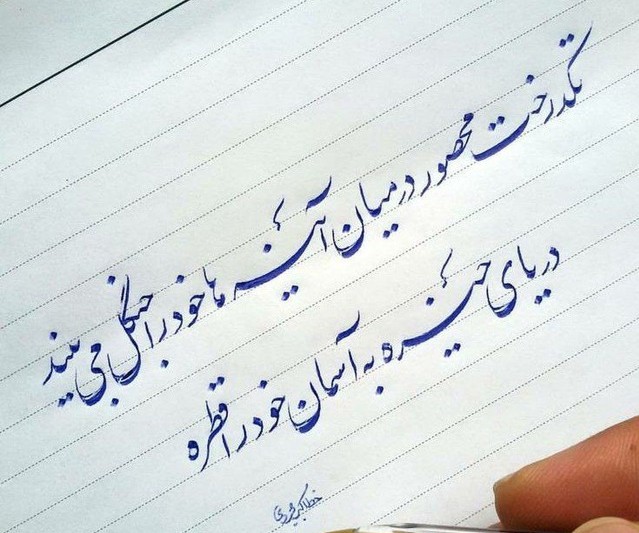 تکدرخت محصور در میان آئینه ها خود را جنگل می بیند
دریای خیره به آسمان خود را قطره
خط اکبر